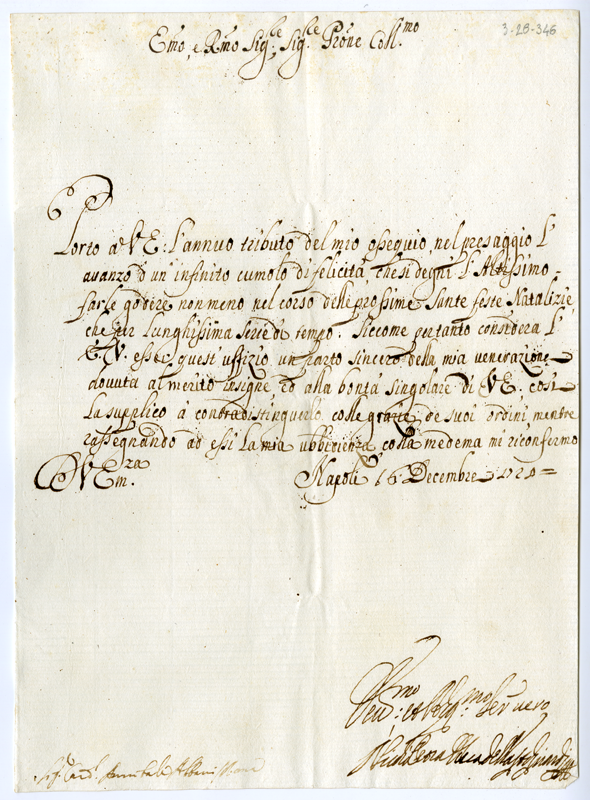 3-28-346
Emo, e Rmo Sig.re Sig.re Prone Coll.mo
Porto a V E: l'annuo tributo del mio ossequio, nel presaggio l'
avanzo d'un'infinito cumolo di felicità, che si degni l'Altissimo
farle godere non meno nel corso delle prossime Sante feste Natalizie,
che per lunghissima serie di tempo. Siccome pertanto considera l'
E V. esser quest'uffizio un parto sincero della mia venerazione
dovuta al merito insigne ed alla bontà singolare di V E. così
la supplico à contradistinguerlo colle grazie de suoi ordini, mentre
rassegnando ad essi la mia ubbidienza colla medema mi riconfermo
D V Em.za
Napoli 16 Decembre
mo mo Ser vero
Sig. Card. Annibale Albani